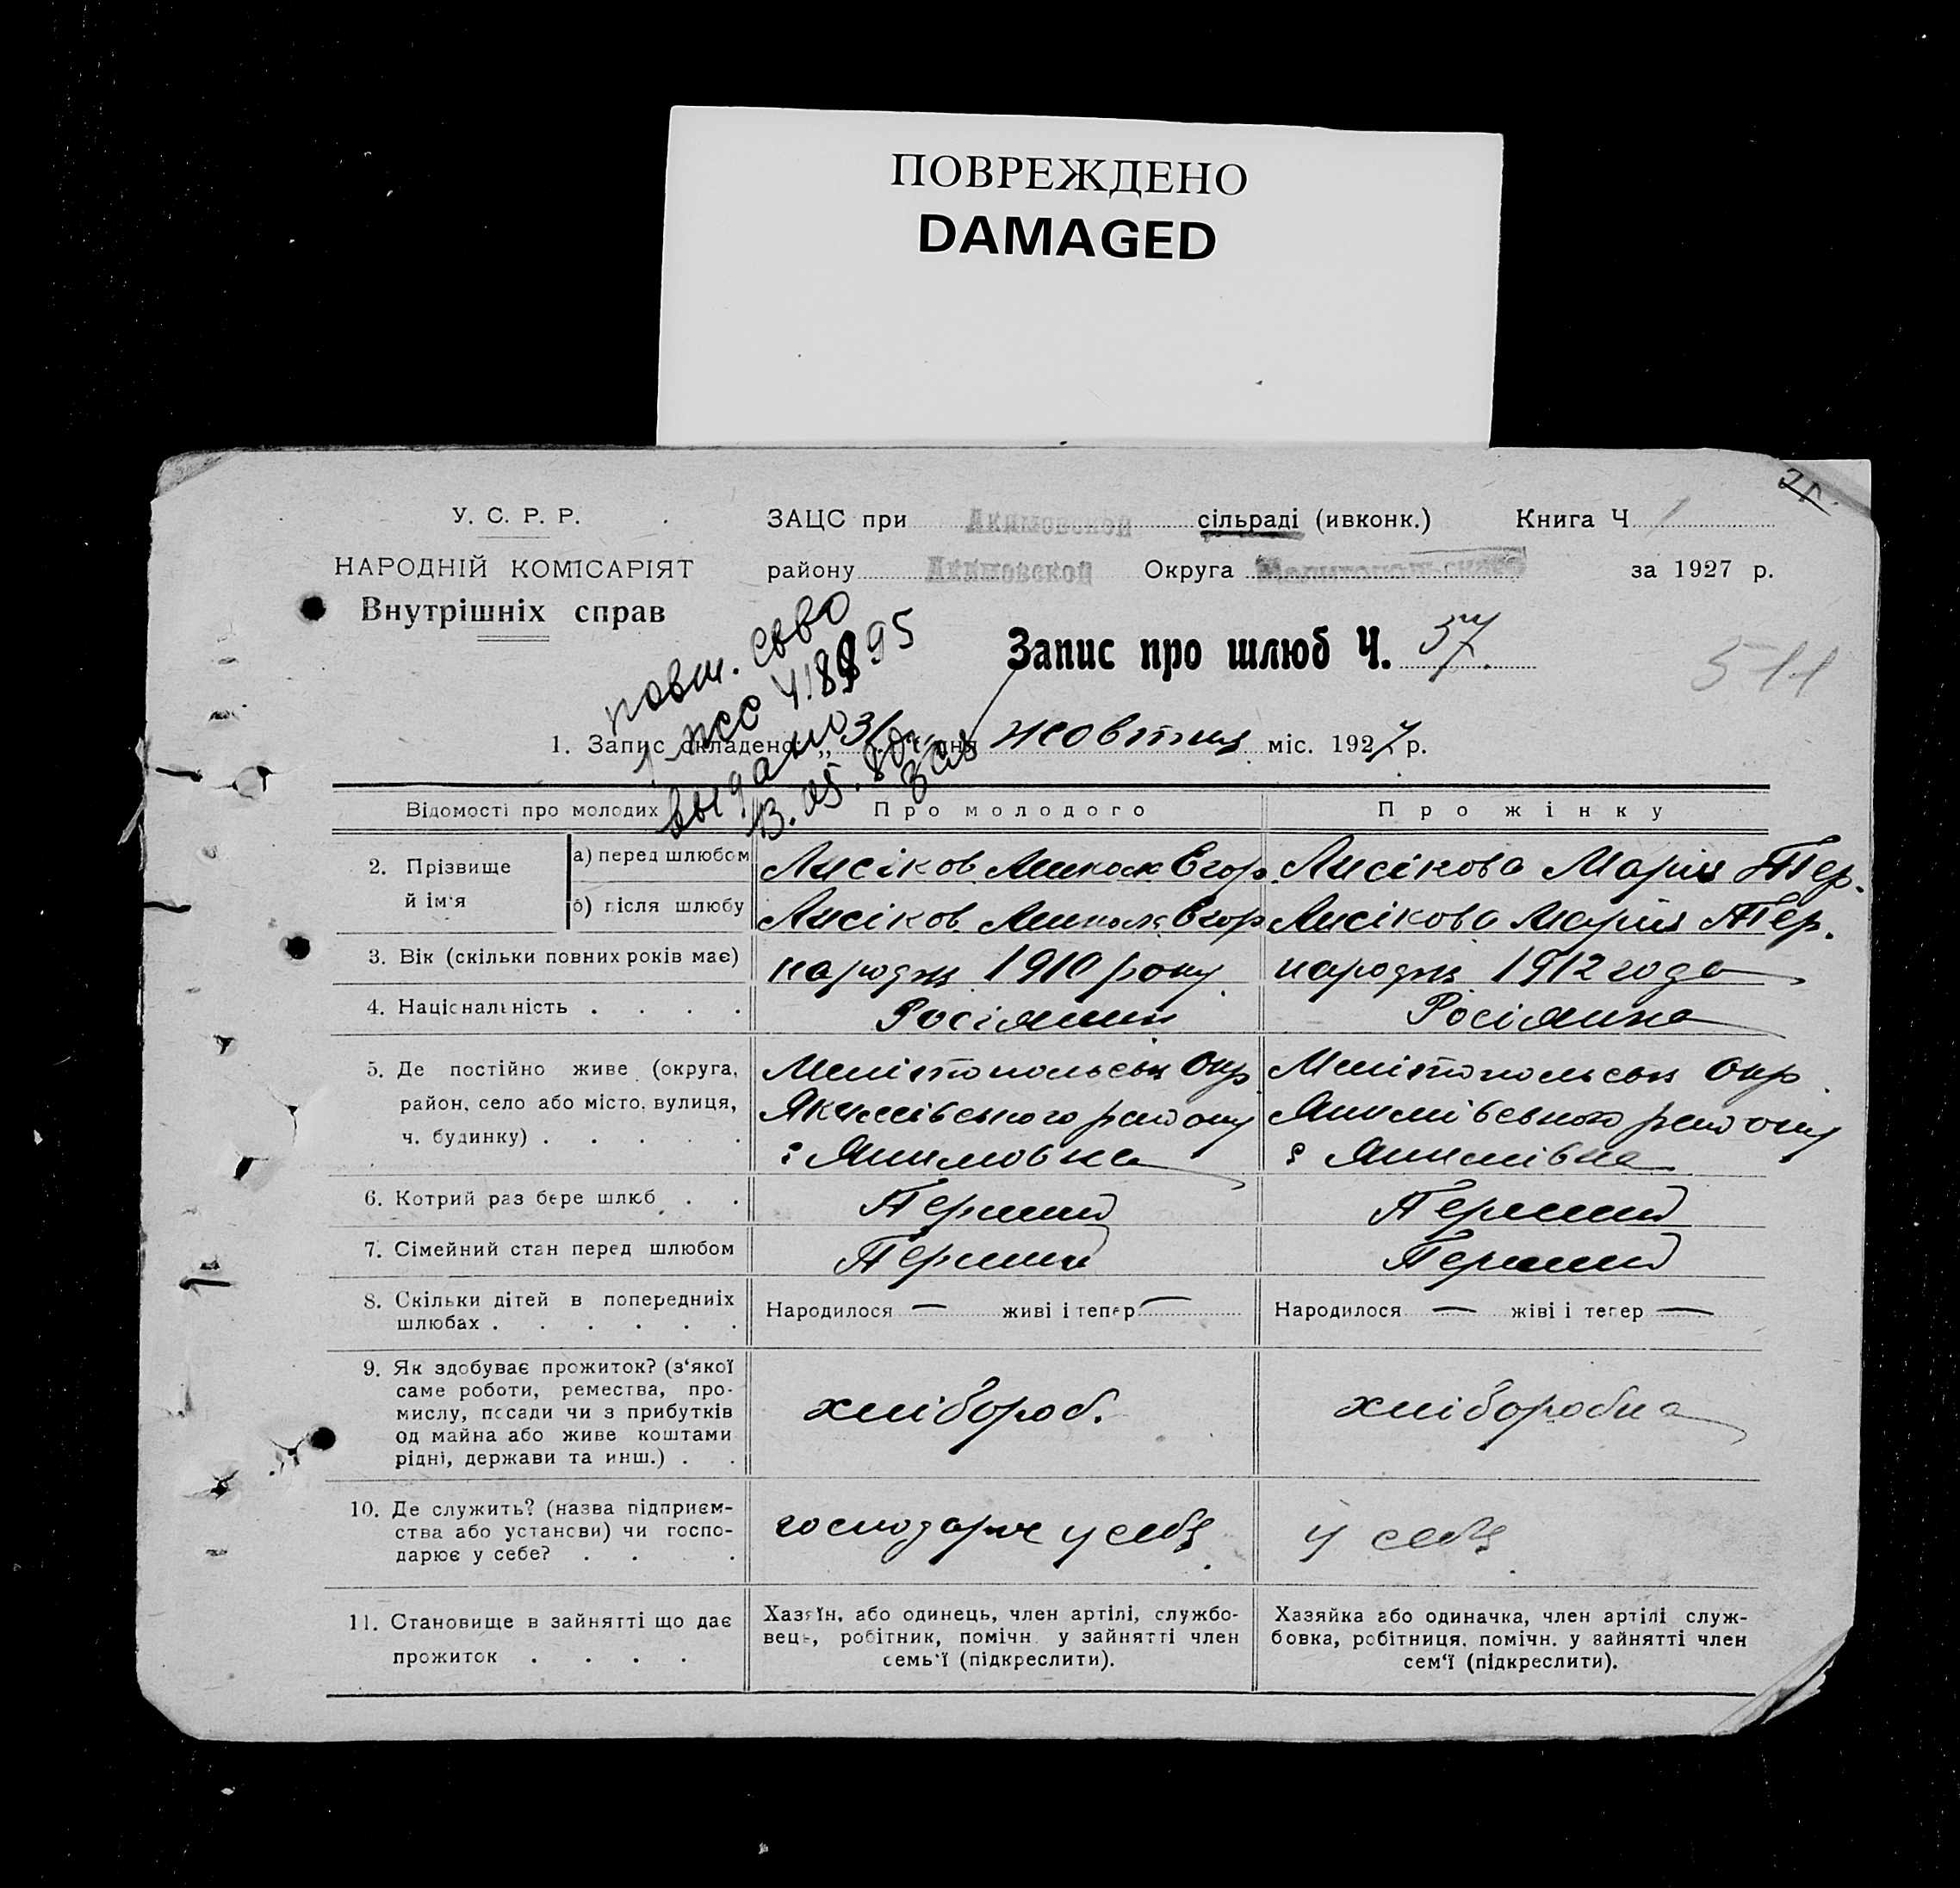 ПОВРЕЖДЕНО
DAMAGED
У. С. Р. Р.
НАРОДНІЙ КОМІСАРІЯТ
Внутрішніх справ
ЗАЦС при Акимовской сільраді (ивконк.) Книга Ч 1
району Акимовской Округа за 1927 р.
Запис про шлюб Ч. 57.
511
повт. св-во
выдано
1. Запис складено: „31“ дня жовтня міс. 1927 р.
Відомості про молодих Про молодого Про жінку
2. Прізвище й ім'я
а) перед шлюбом Лисіков Микола Егор. Лисікова Марія Тер.
б) після шлюбу Лисіков Микола Егор Лисікова Марія Тер.
3. Вік (скільки повних років має) народж 1910 року народж 1912 года
4. Національність . . . . Росіянин Росіянка
5. Де постійно живе (округа, район, село або місто, вулиця, ч. будинку) . . . . .
Мелітопольськ Окр Мелітопольськ Окр
Якимівського району Якимівського району
с Якимовка с Якимівка
6. Котрий раз бере шлюб . . Перший Перший
7. Сімейний стан перед шлюбом Перший Перший
8. Скільки дітей в попередниіх шлюбах . . . . . . Народилося — живі і тепер — Народилося — жіві і тепер —
9. Як здобуває прожиток? (з'якої
саме роботи, ремества, про-
мислу, посади чи з прибутків
од майна або живе коштами
рідні, держави та инш.) . .
хлібороб. хліборобка
10. Де служить? (назва підприєм-
ства або установи) чи госпо-
дарює у себе? . . .
господарює у себе у себе
11. Становище в зайнятті що дає
прожиток . . . .
Хазяїн, або одинець, член артілі, службо-
вець, робітник, помічн. у зайнятті член
семь'ї (підкреслити).
Хазяйка або одиначка, член артілі служ-
бовка, робітниця, помічн. у зайнятті член
сем'ї (підкреслити).